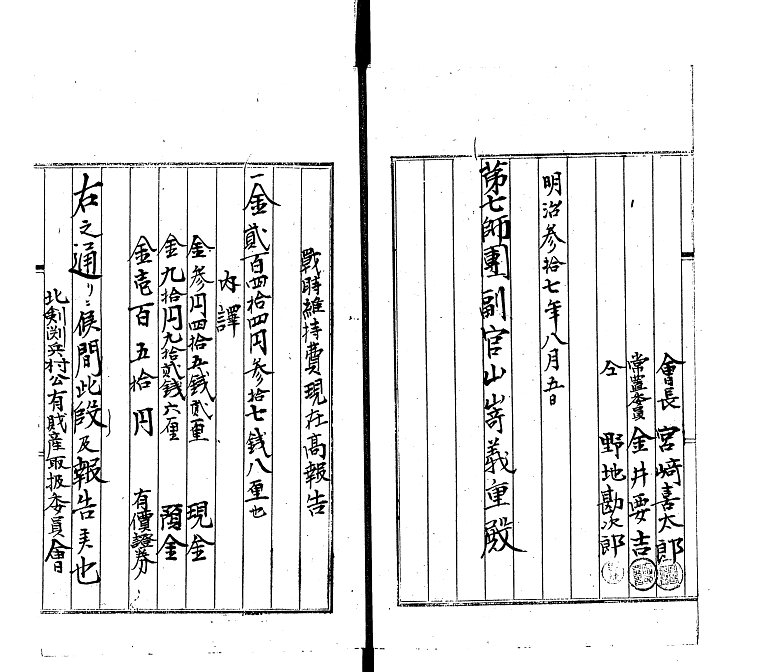 會長 宮﨑喜太郎
常置委員 金井要吉
仝 野地勘次郎
明治参拾七年八月五日
第七師團副官山嵜義重殿
戰時維持費現在高報告
一金貳百四拾四円参拾七銭八厘也
内譯
金参円四拾五銭貳厘 現金
金九拾円九拾貳銭六厘 預金
金壱百五拾円 有價證券
右之通リニ候間此段及報告候也
北剣渕兵村公有財産取扱委員會